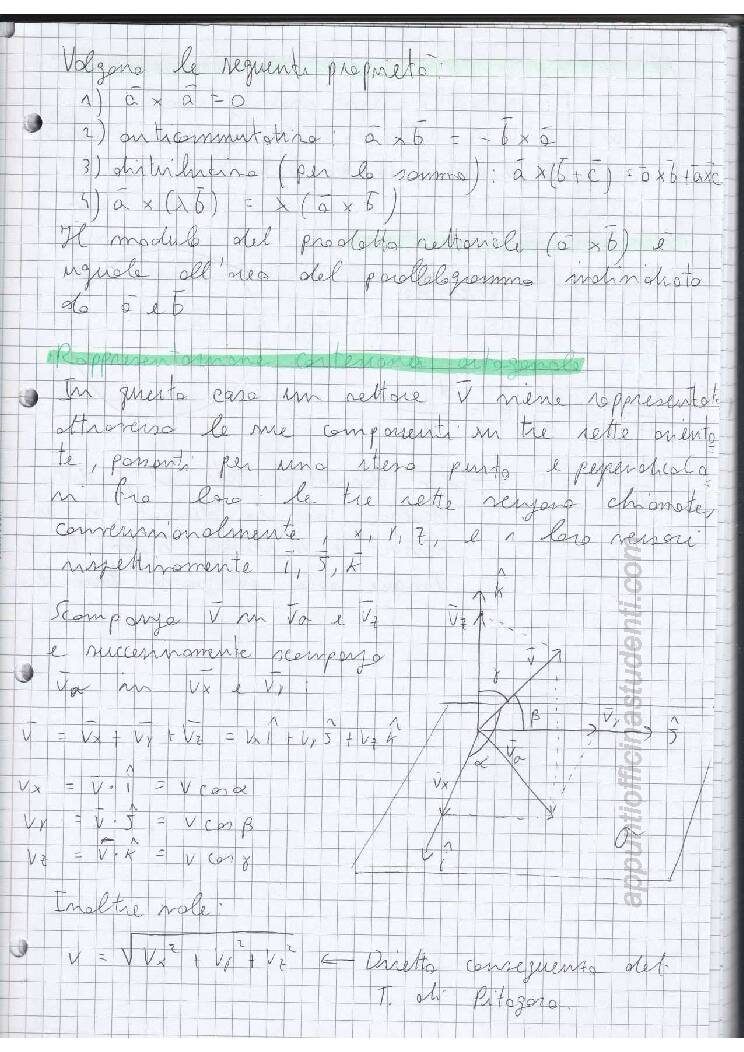 Valgono le seguenti proprietà:
1) a̅ × a̅ = 0
2) anticommutativa: a̅ × b̅ = - b̅ × a̅
3) distributiva (per la somma): a̅ × (b̅ + c̅) = a̅ × b̅ + a̅ × c̅
4) a̅ × (λb̅) = λ(a̅ × b̅)
Il modulo del prodotto vettoriale (a̅ × b̅) è
uguale all'area del parallelogramma individuato
da a̅ e b̅
Rappresentazione cartesiana ortogonale
In questo caso un vettore V̅ viene rappresentato
attraverso le sue componenti su tre rette orienta
te, passanti per uno stesso punto e perpendicola
ri fra loro: le tre rette vengono chiamate,
convenzionalmente, x, y, z, e i loro versori
rispettivamente i̅, j̅, k̅
Scompongo V̅ in V̅a e V̅z
e successivamente scompongo
V̅a in V̅x e V̅y:
V̅ = V̅x + V̅y + V̅z = Vx î + Vy ĵ + Vz k̂
Vx = V̅ · î = V cos α
Vy = V̅ · ĵ = V cos β
Vz = V̅ · k̂ = V cos γ
Inoltre vale:
V = √Vx² + Vy² + Vz² ← Diretta conseguenza del
T. di Pitagora.
k̂
V̅z
V̅
γ
β
V̅y
ĵ
V̅a
α
V̅x
î
appuntiofficinastudenti.com